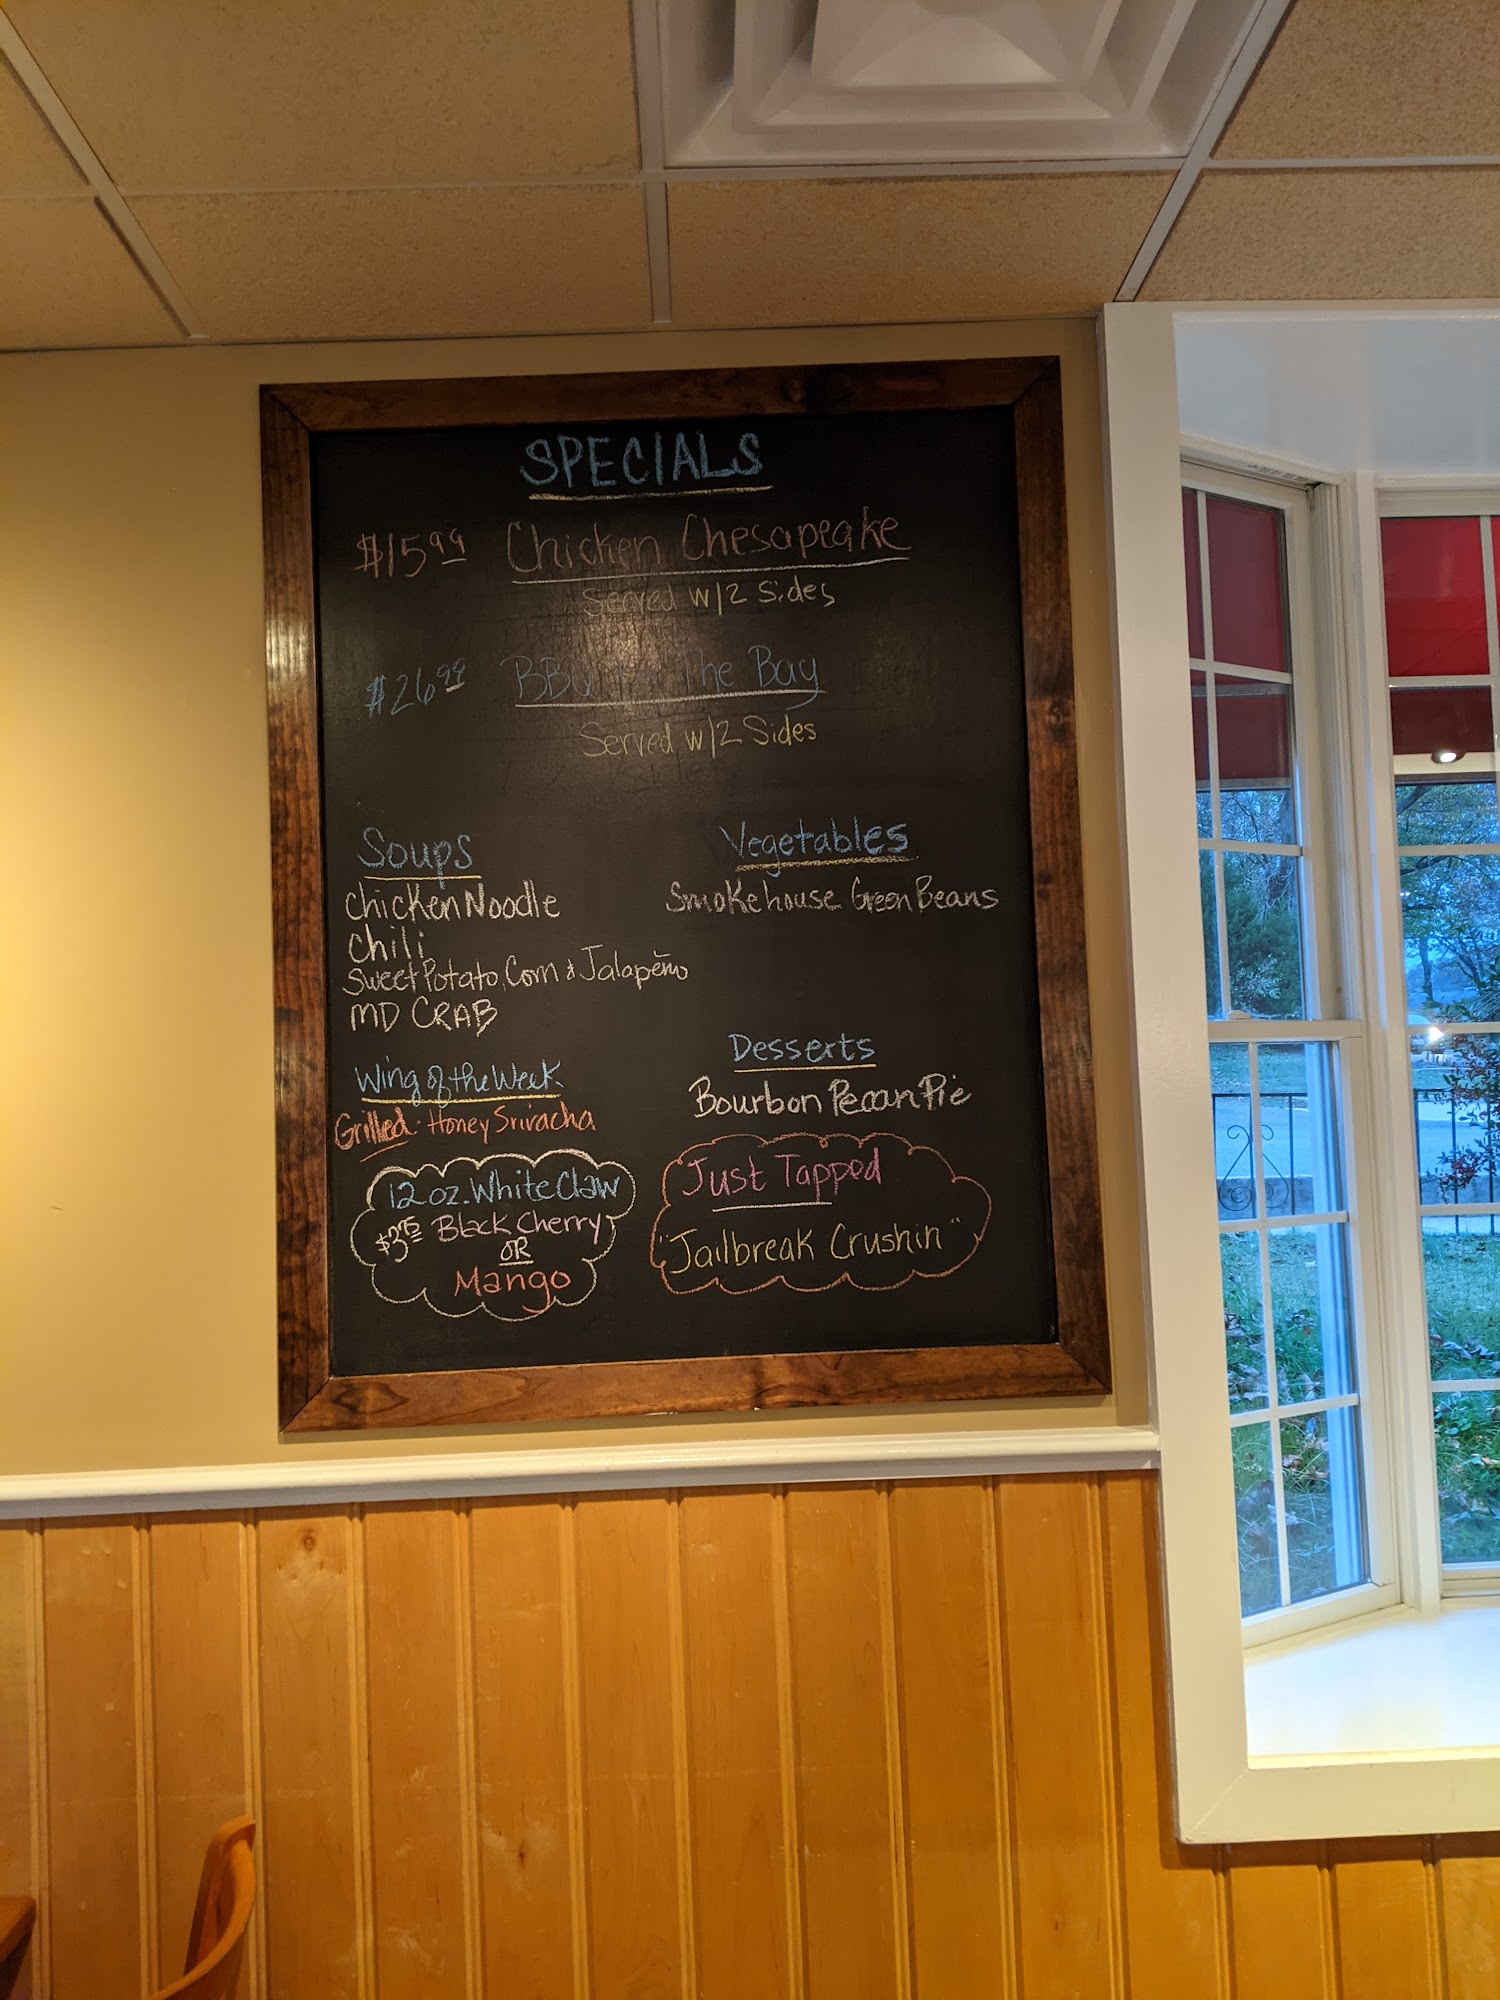 SPECIALS
$15.99 Chicken Chesapeake
Served w/2 Sides
$26.99 BBQ The Bay
Served w/2 Sides
Soups
Chicken Noodle
Chili
Sweet Potato, Corn & Jalapeño
MD CRAB
Wing of the Week
Grilled: Honey Sriracha
12 oz. White Claw
$3.75 Black Cherry
OR
Mango
Vegetables
Smokehouse Green Beans
Desserts
Bourbon Pecan Pie
Just Tapped
"Jailbreak Crushin"